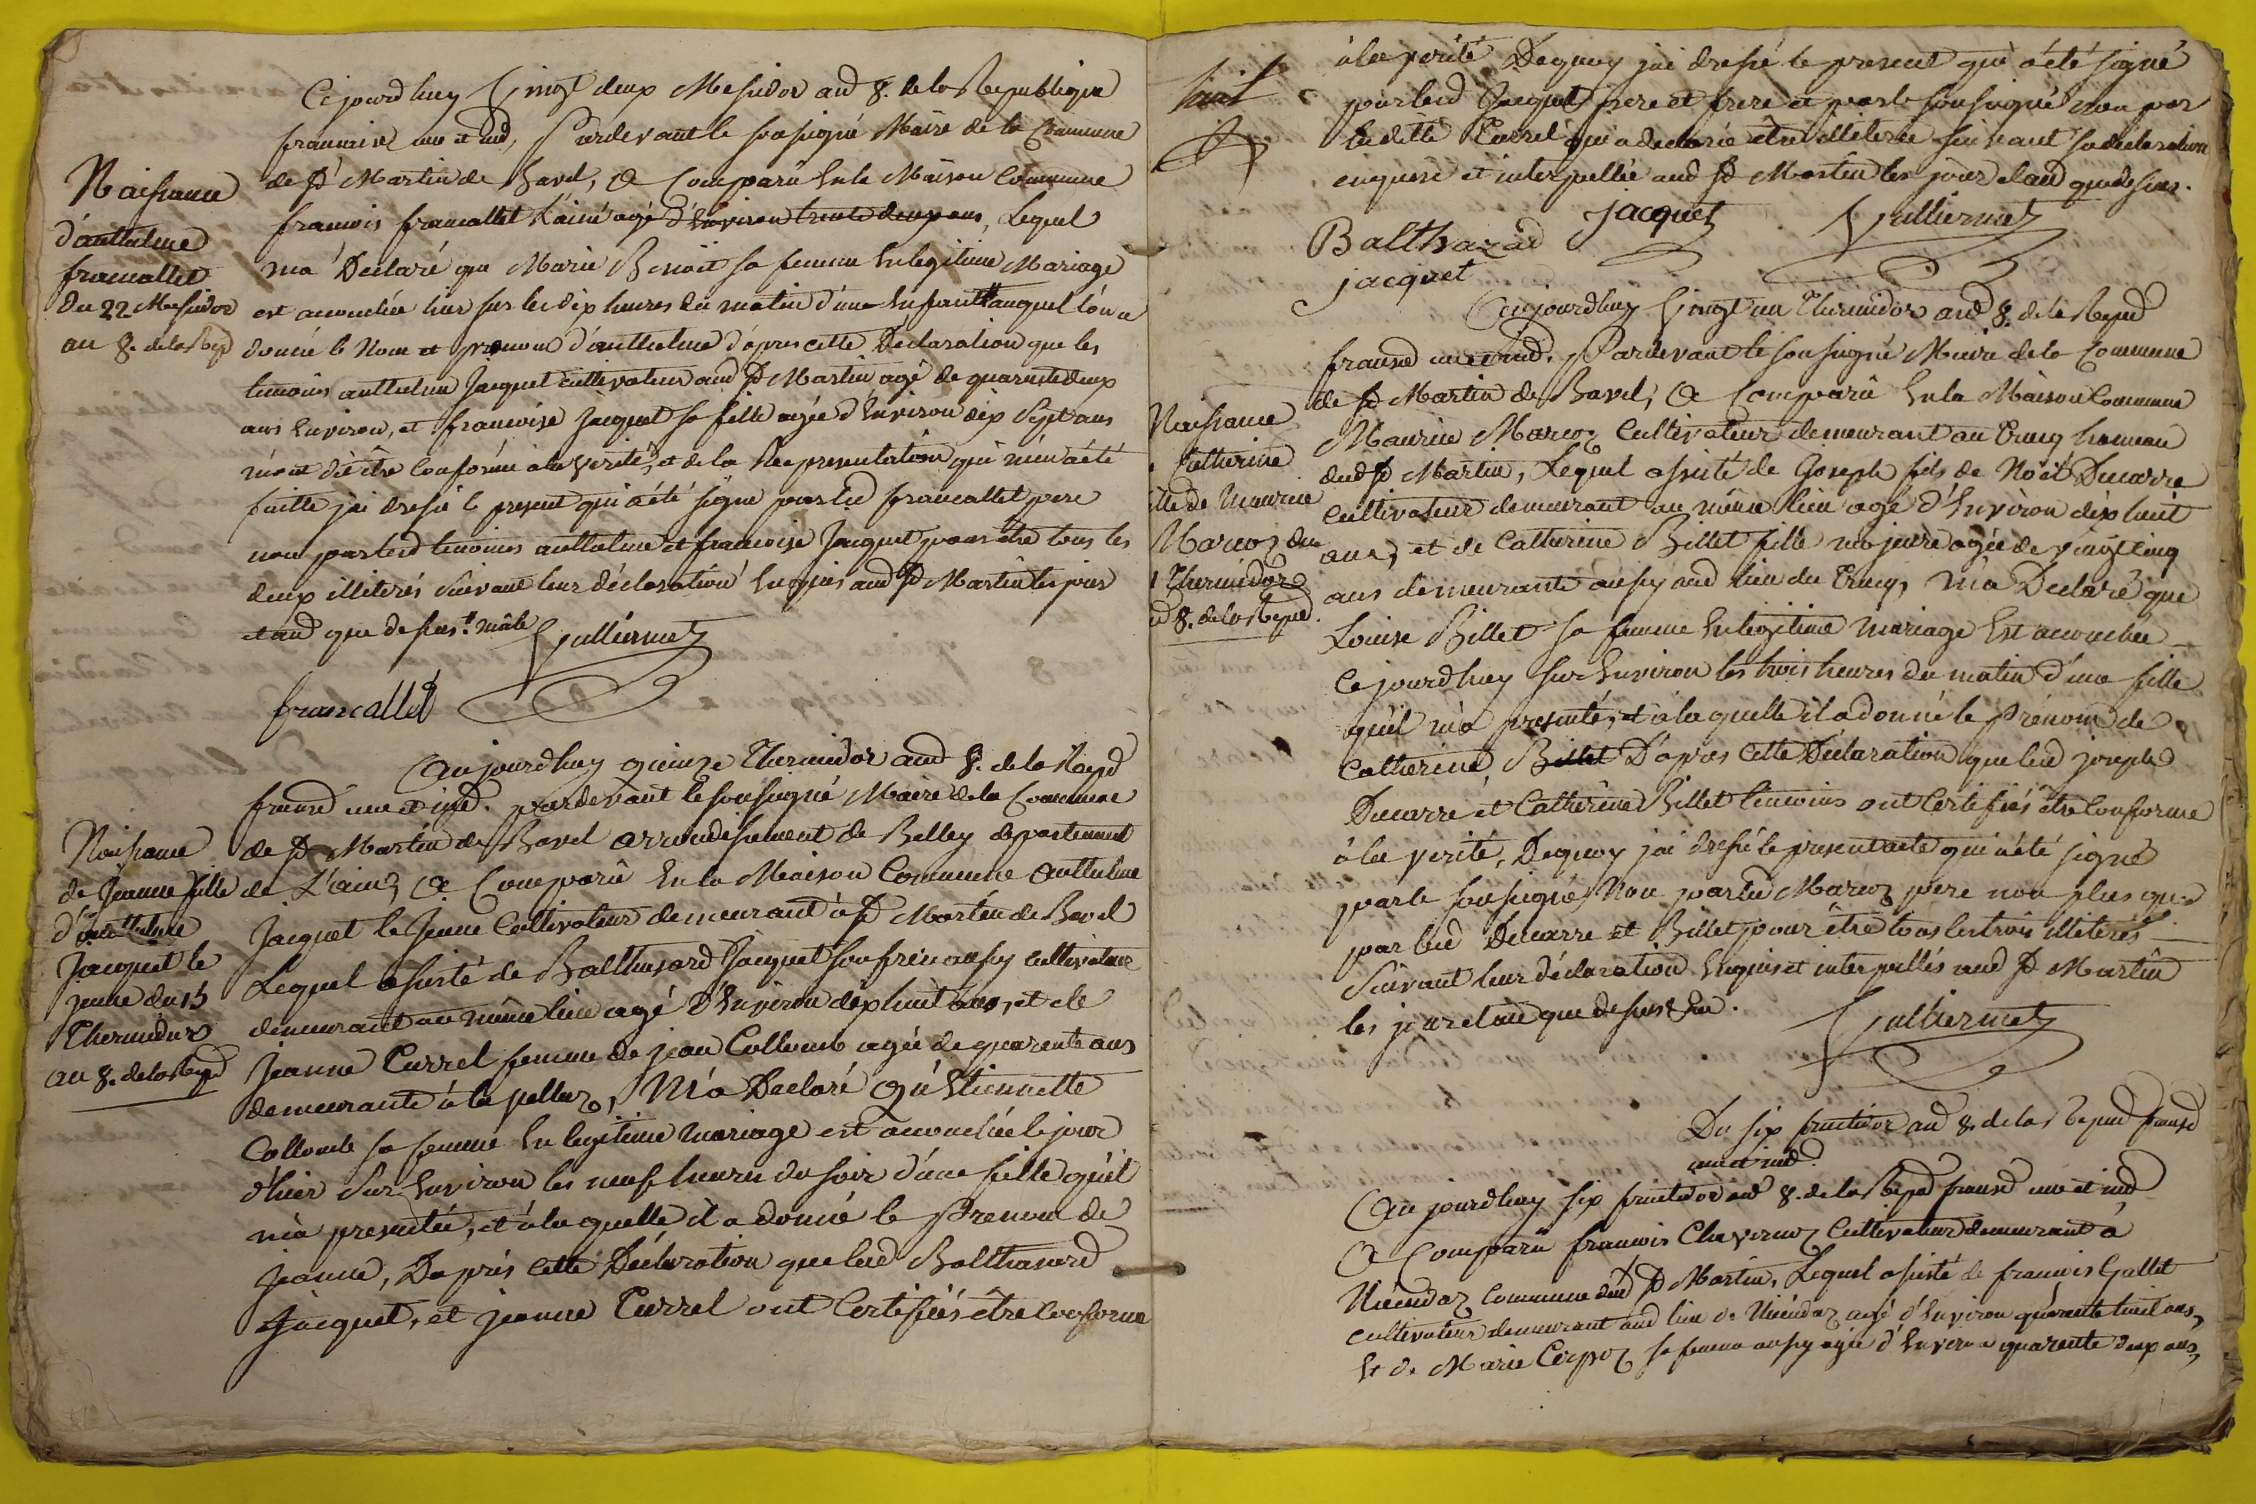 Ce jourd'huy vingt deux Messidor and 8. de la Republique
francaise une et ind, Pardevant le soussigné Maire de la Commune
de St Martin de Bavel, a Comparû en la Maison Commune
francois francallet l'ainé agé d'Environ trente deux ans, Lequel
m'a Declaré que Marie Benoit sa femme en legitime Mariage
est accouchée hier sur les dix heures du matin d'une Enfant auquel l'on a
donné le Nom et prenom d'anthelme d'apres cette Declaration que les
temoins anthelme Jacquet cultivateur aud St Martin agé de quarante deux
ans Environ, et francoise Jacquet sa fille agée d'Environ dix Sept ans
m'ont dit être Conforme a la verité, et de la Representation qui m'en a été
faitte j'ai dressé le present qui a été signé par led francallet pere
non par led temoins anthelme et francoise Jacquet pour être tous les
deux illiterés suivant leur déclaration Enquis aud St Martin les jour
et and que dessus. mâle
Vulliermet
francallet
Naissance
d'anthelme
francallet
du 22 Messidor
an 8. de la Repd
Aujourdhuy quinze Thermidor and 8. de la Repd
fransd une et ind. pardevant le soussigné Maire de la Commune
de St Martin de Bavel arrondissement de Belley departement
de L'ain, a Comparû en la Maison Commune Anthelme
Jacquet le Jeune Cultivateur demeurant à St Martin de Bavel
Lequel assisté de Balthasard Jacquet son frere aussy cultivateur
demeurant au même lieu agé d'Environ dix huit ans, et de
Jeanne Currel femme de jean Collomb agée de quarente ans
demeurante à la pellaz, M'a Declaré qu'Etiennette
Collomb sa femme En legitime mariage est accouchée le jour
d'hier Sur Environ les neuf heures du soir d'une fille qu'il
m'a presentée, et à la quelle il a donné le Prenom de
Jeanne, D'après cette Déclaration que led Balthasard
Jacquet, et jeanne Currel ont Certifiés être Conforme
Naissance
de Jeanne fille
d'anthelme
Jacquet le
jeune du 15
Thermidor
an 8. de la Repd
à la verité Dequoy j'ai dressé le present qui a été signé
par led Jacquet pere et frere et par le soussigné non par
laditte Currel qui a declarée être illiterée suivant sa déclaration
enquise et interpellée aud St Martin les jour et and que dessus.
Balthazard
jacquet
jacquet
Vulliermet
huit
Aujourdhuy vingt un Thermidor and 8. de la Repd
fransd une et ind. Pardevant le soussigné Maire de la Commune
de St Martin de Bavel, a Comparû En la Maison Commune
Maurice Marcoz Cultivateur demeurant au Crucq hameau
dud St Martin, Lequel assisté de Joseph fils de Noël Ducarre
cultivateur demeurant au même lieu agé d'Environ dix huit
ans, et de Catherine Billet fille majeure agée de vingt cinq
ans demeurante aussy aud lieu du Crucq, M'a Declaré que
Louise Billet sa femme En legitime mariage Est accouchée
Ce jourdhuy sur Environ les trois heures du matin d'une fille
qu'il m'a presentée, et à la quelle il a donné le Prénom de
Catherine, Billet D'après cette Déclaration que led joseph
Ducarre et Catherine Billet temoins ont Certifiés être Conforme
à la verité, Dequoy j'ai dressé le present acte qui a été signé
par le soussigné, Non par led Marcoz pere non plus que
par led Ducarre et Billet pour être tous les trois illiterés
Suivant leur déclaration Enquis et interpellés aud St Martin
les jour et an que dessus
Vulliermet
Naissance
Catherine
de Maurice
Marcoz du
1 Thermidor
8. de la Repd.
Du six fructidor and 8. de la Repud fransd
une et ind.
Aujourdhuy six fructidor and 8. de la Repd fransd une et ind
a Comparû francois Chavernoz Cultivateur demeurant à
Vuéndaz Commune dud St Martin, Lequel assisté de francois Gallet
cultivateur demeurant aud lieu de Vuéndaz agé d'Environ quarante huit ans,
Et de Marie Cerpoz sa femme aussy agée d'Environ quarante deux ans,